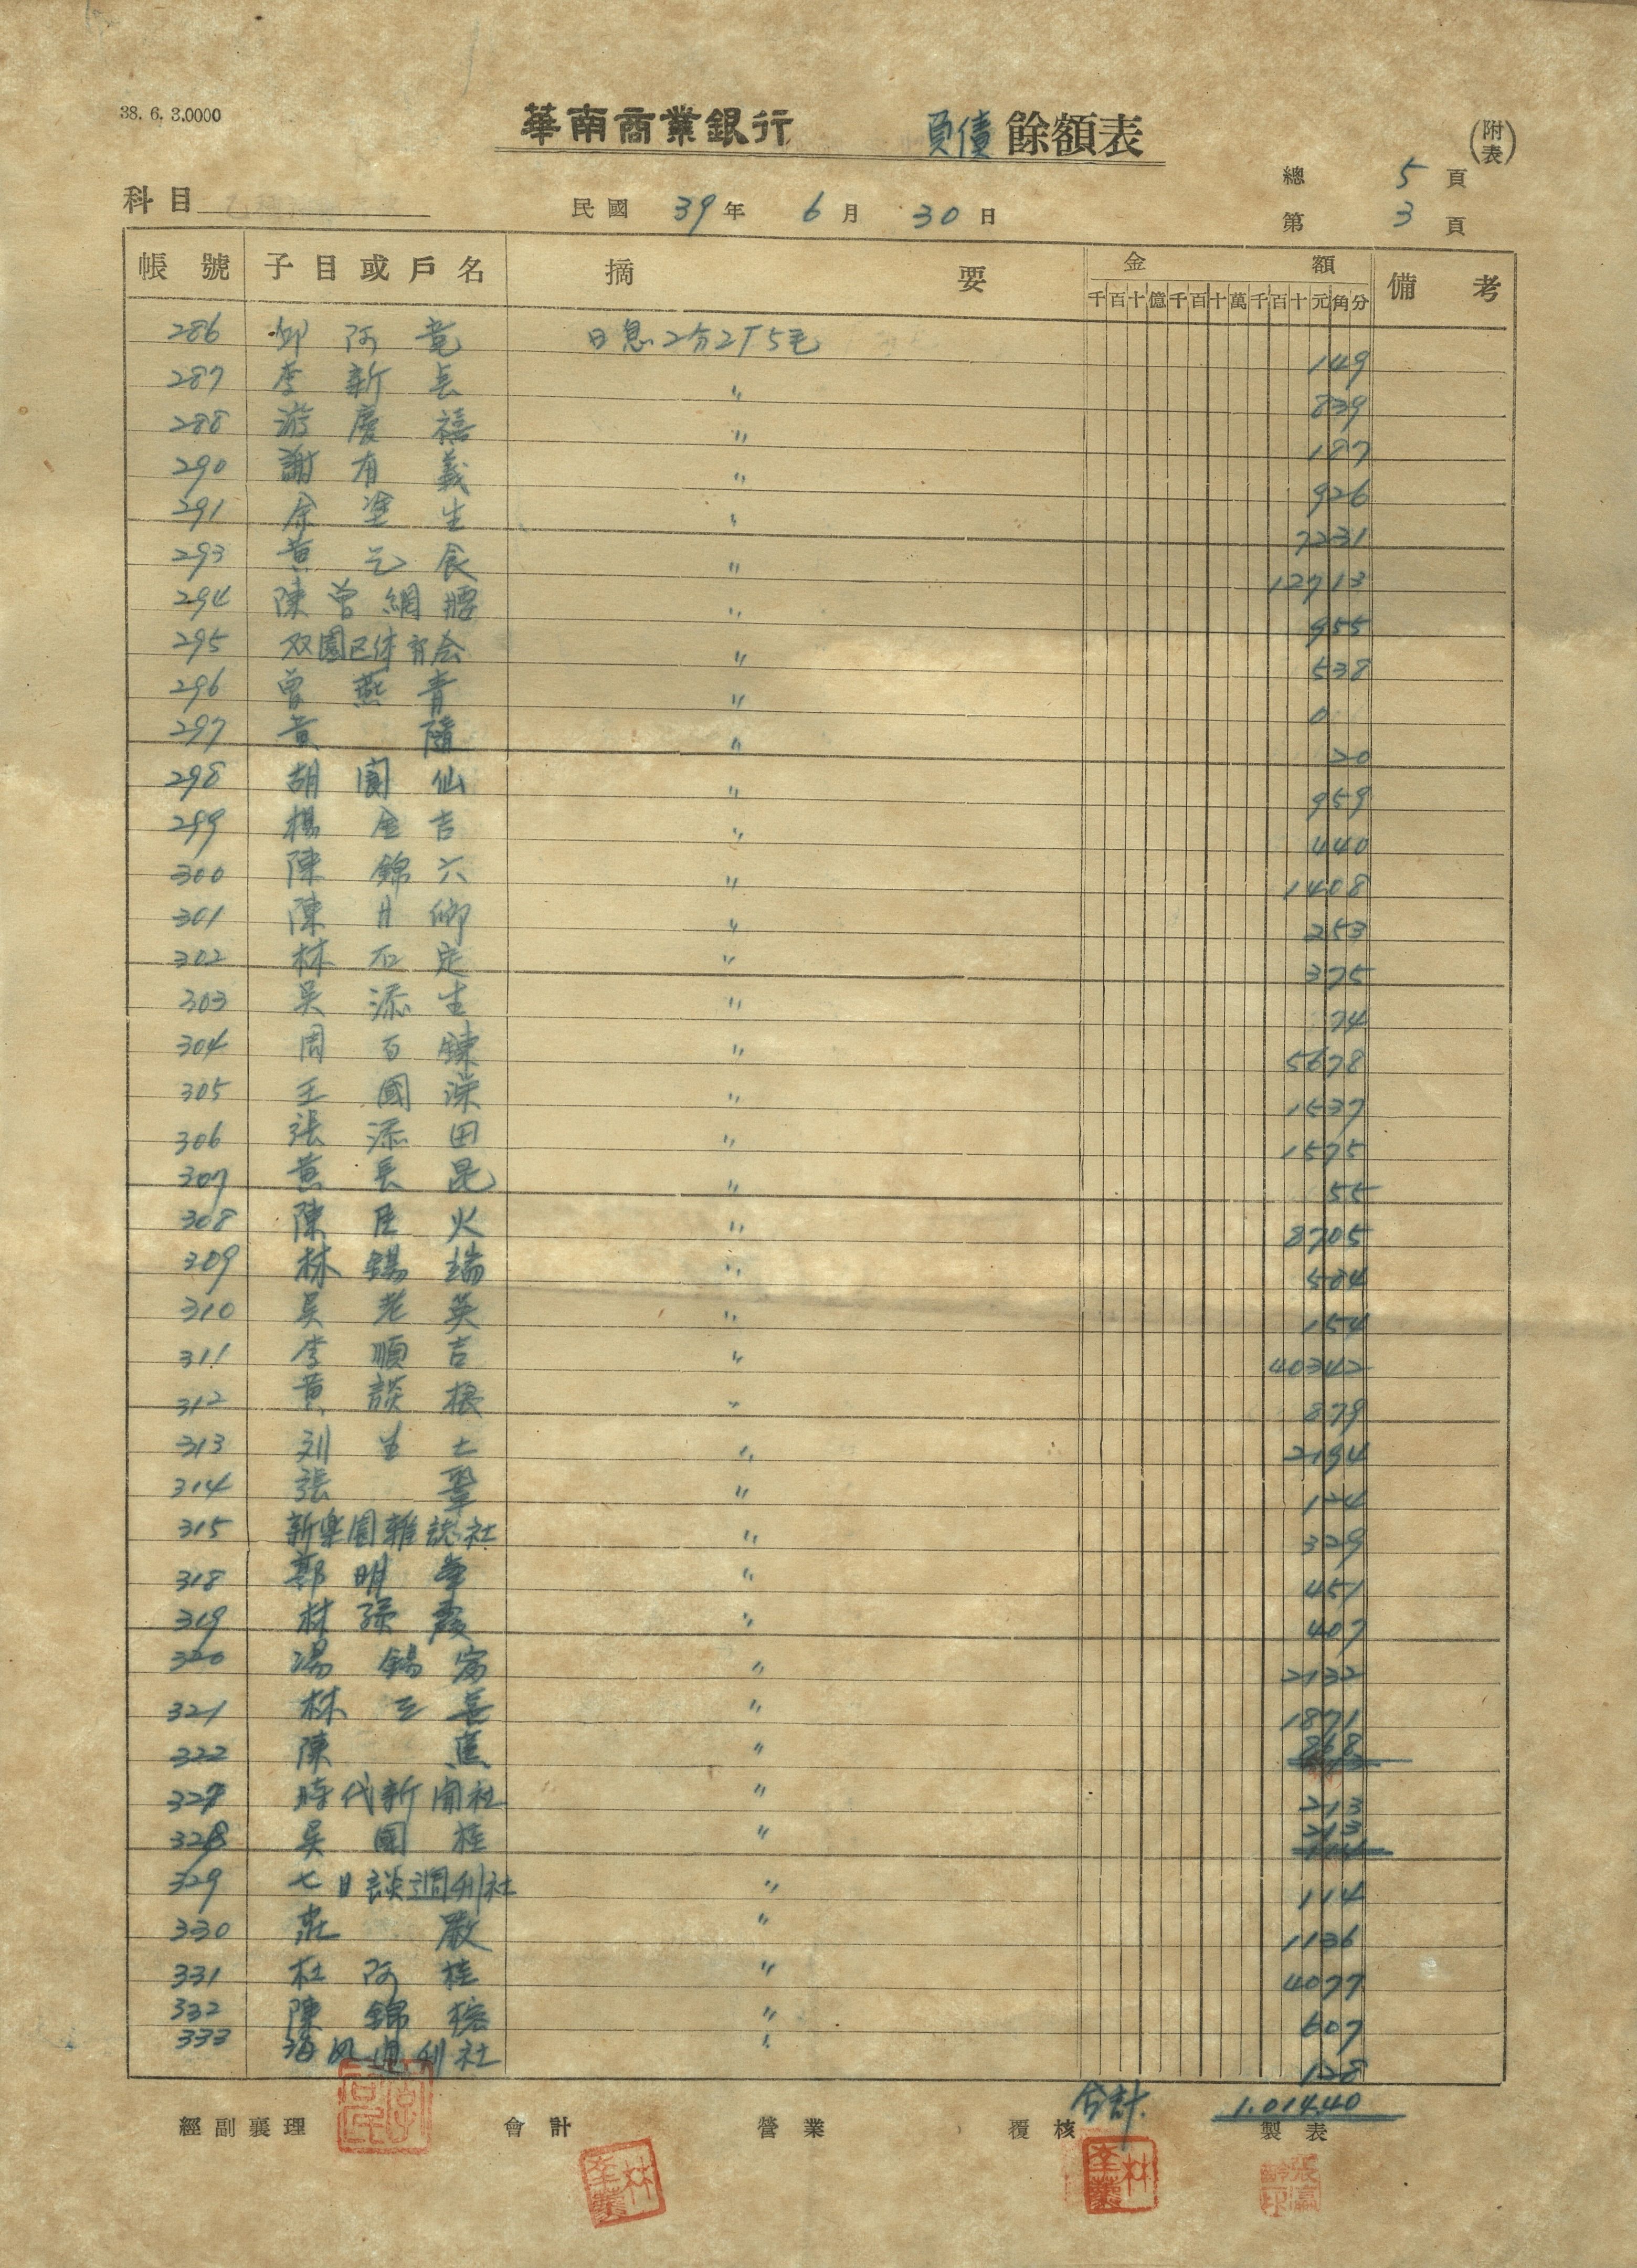 38. 6. 3.0000
華南商業銀行 負債餘額表 (附表)
總 5 頁
科目 民國 39年 6月 30日
第 3 頁
帳號 子目或戶名 摘要 金額 備考
千百十億千百十萬千百十元角分
286 邱阿竜 日息2分2厂5毛 149
287 李新長 〃 839
288 游慶禧 〃 197
290 謝有義 〃 926
291 余塗生 〃 7231
293 黃乞食 〃 12713
294 陳曾網腰 〃 955
295 双園区体育会 〃 538
296 曾燕青 〃 0
297 黃隨 〃 20
298 胡園仙 〃 959
299 楊金吉 〃 440
300 陳錦六 〃 1408
301 陳日卿 〃 253
302 林石定 〃 375
303 吳添生 〃 74
304 周百鍊 〃 5678
305 王國深 〃 1537
306 張添田 〃 1575
307 黃長昆 〃 55
308 陳臣火 〃 8705
309 林錫瑞 〃 584
310 吳老英 〃 154
311 李順吉 〃 40342
312 黃談根 〃 879
313 刘生土 〃 2194
314 張聖 〃 124
315 新楽園雜誌社 〃 329
318 鄭明華 〃 451
319 林張霞 〃 407
320 湯錫富 〃 2132
321 林玉善 〃 1871
322 陳蕉 〃 868
327 時代新聞社 〃 213
328 吳國桂 〃 213
329 七日談週刋社 〃 114
330 莊嚴 〃 1136
331 杜阿桂 〃 4077
332 陳錦榕 〃 607
333 海风週刋社 〃 128
合計 1.014.40
經副襄理 會計 營業 覆核 製表